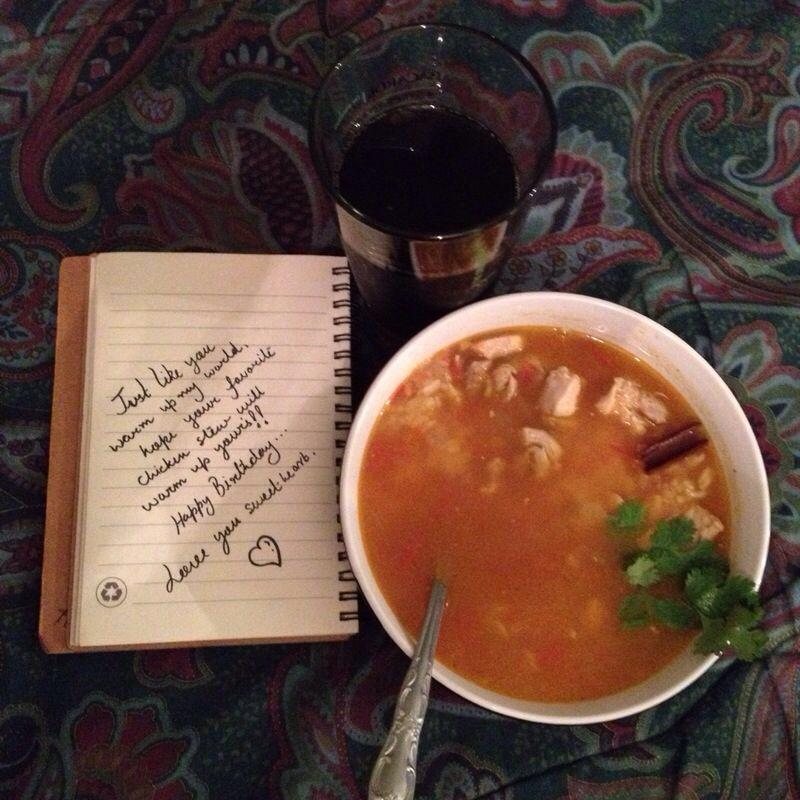 Just like you
warm up my world,
hope your favorite
chicken stew will
warm up yours!!
Happy Birthday...
Love you sweetheart.